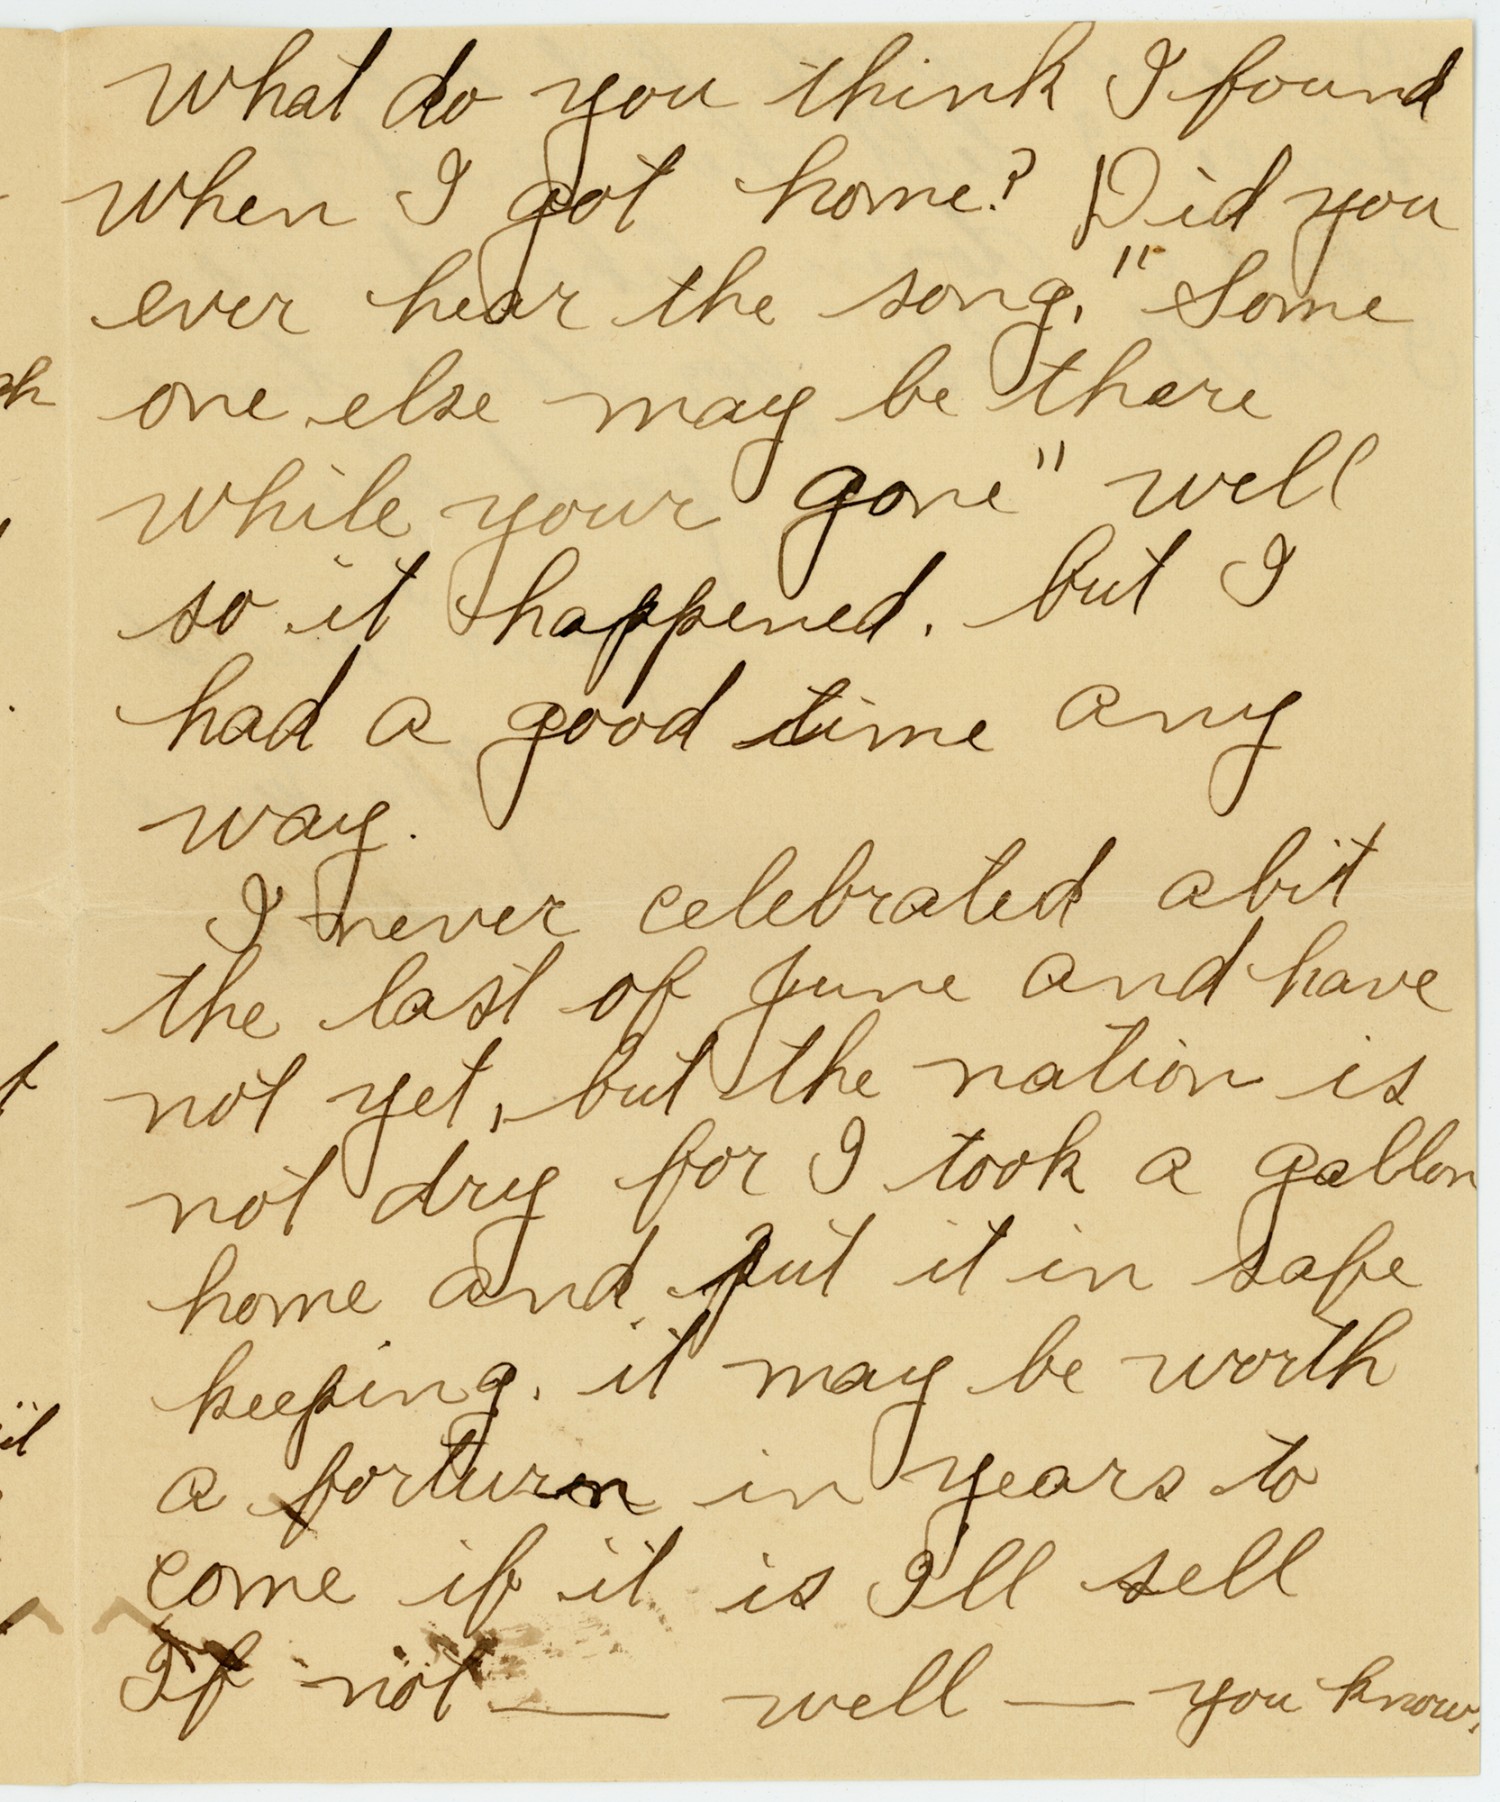 what do you think I found
when I got home? Did you
ever hear the song, "Some
one else may be there
while your gone" well
so it happened. but I
had a good time any
way.
I never celebrated abit
the last of June and have
not yet, but the nation is
not dry for I took a gallon
home and put it in safe
keeping. it may be worth
a forturn in years to
come if it is I'll sell
If not — well — you know.